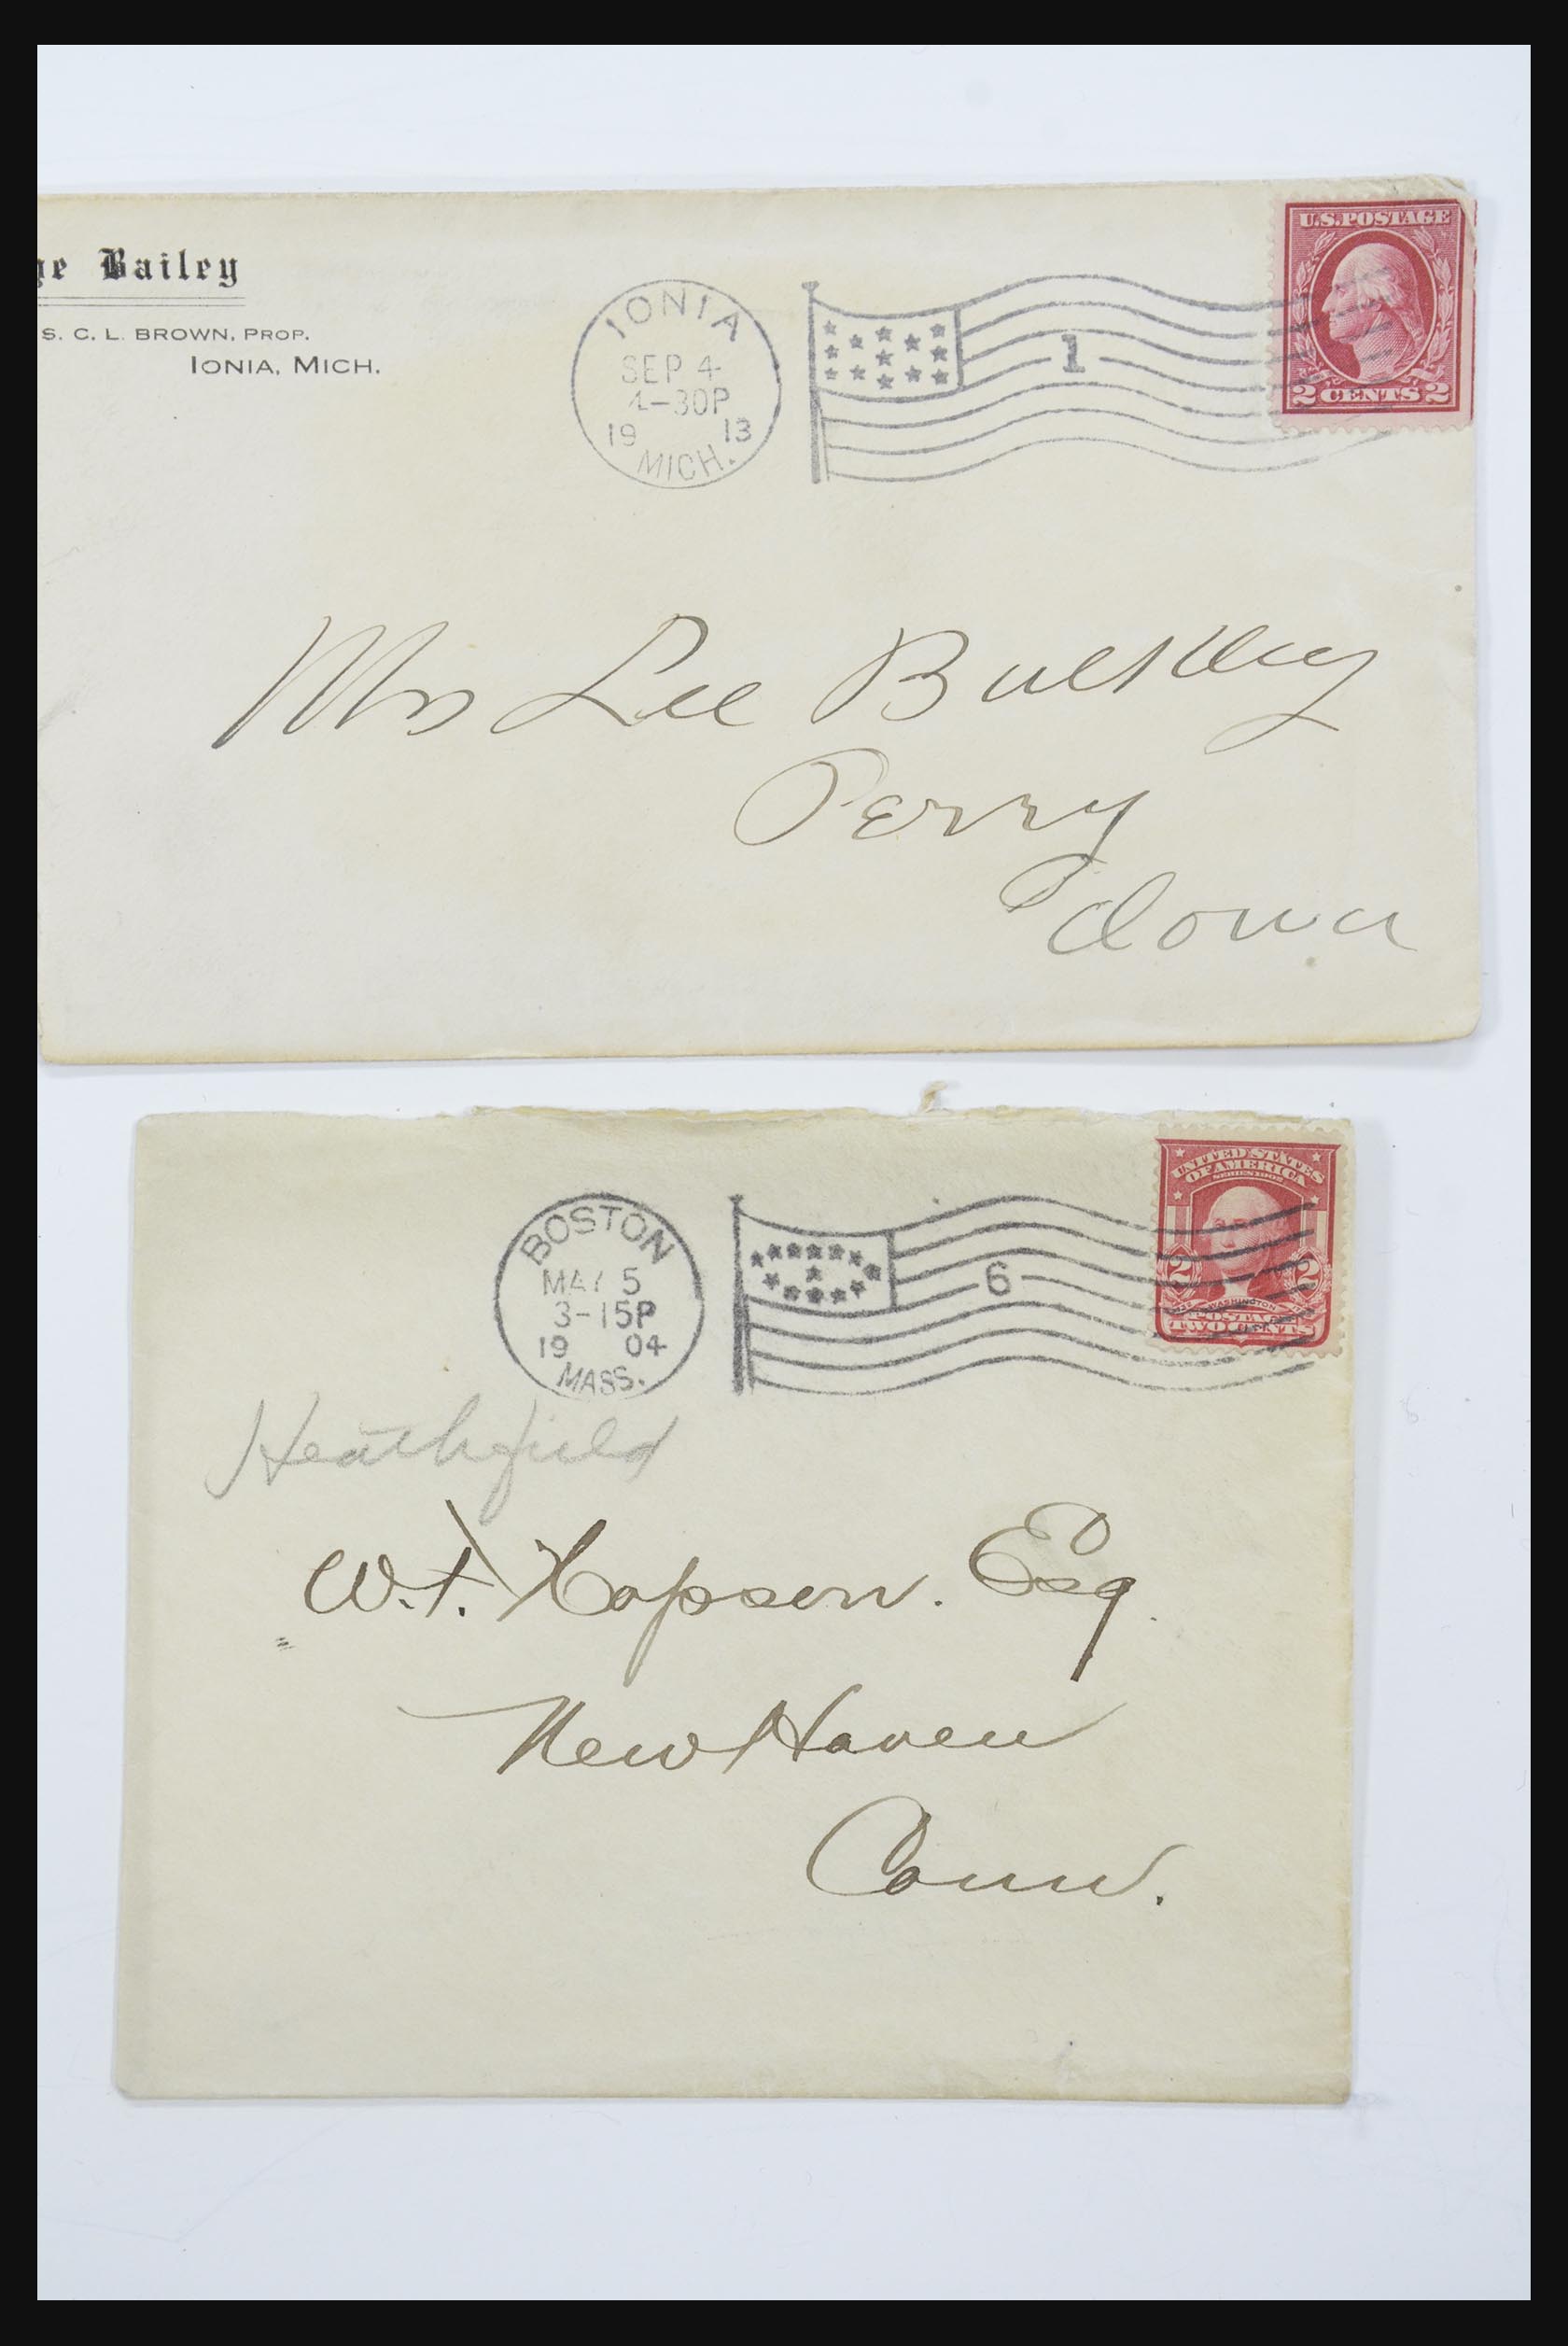 Bailey
S. C. L. BROWN, PROP.
IONIA, MICH.
IONIA
SEP 4
4-30P
19 13
MICH.
1
U.S. POSTAGE
2 CENTS 2
Mrs Lee Bulkley
Perry
Iowa
BOSTON
MAY 5
3-15P
19 04
MASS.
6
UNITED STATES
OF AMERICA
SERIES 1902
2 2
WASHINGTON
POSTAGE
TWO CENTS
Heathfield
W.F. Hopson. Esq.
New Haven
Conn.